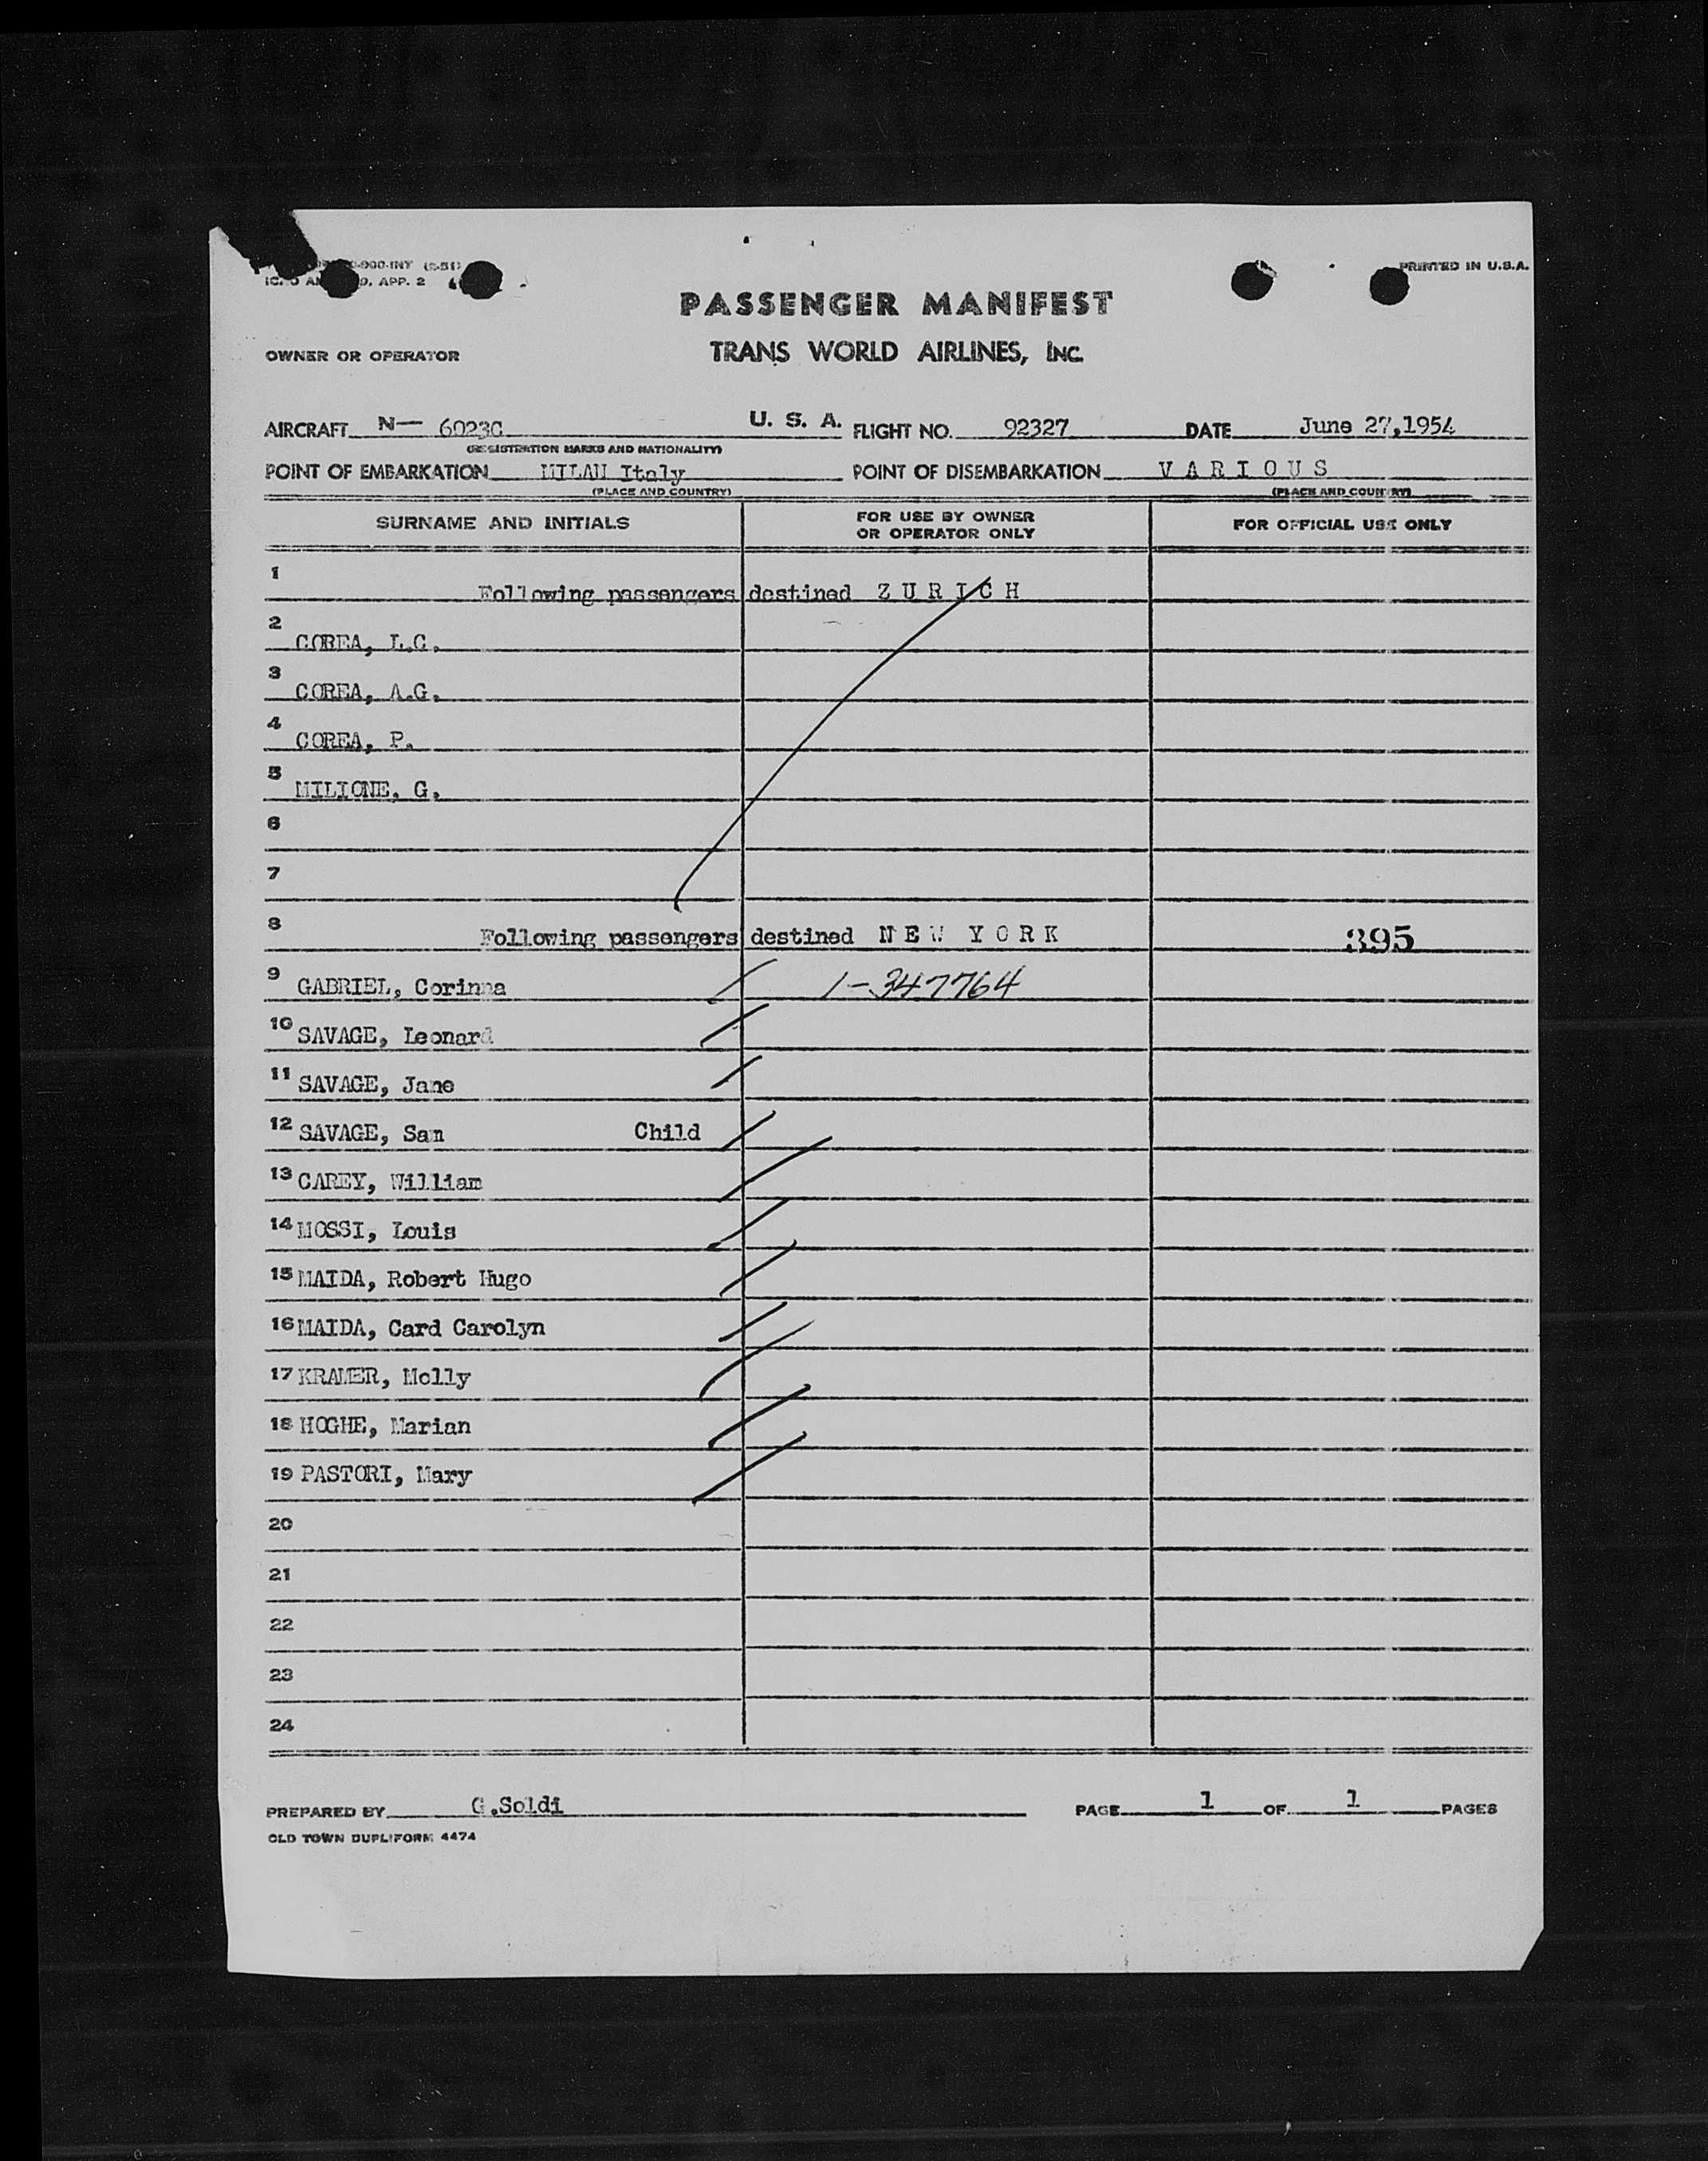 -900-INT (2-51)
APP. 2
PRINTED IN U.S.A.
PASSENGER MANIFEST
OWNER OR OPERATOR TRANS WORLD AIRLINES, INC.
AIRCRAFT N— 6023C U. S. A. FLIGHT NO. 92327 DATE June 27,1954
(REGISTRATION MARKS AND NATIONALITY)
POINT OF EMBARKATION MILAN Italy POINT OF DISEMBARKATION V A R I O U S
(PLACE AND COUNTRY) (PLACE AND COUNTRY)
SURNAME AND INITIALS FOR USE BY OWNER OR OPERATOR ONLY FOR OFFICIAL USE ONLY
1 Following passengers destined Z U R I C H
2 COREA, L.C.
3 COREA, A.G.
4 COREA, P.
5 MILIONE, G.
6
7
8 Following passengers destined N E W Y O R K 395
9 GABRIEL, Corinna 1-347764
10 SAVAGE, Leonard
11 SAVAGE, Jane
12 SAVAGE, Sam Child
13 CAREY, William
14 MOSSI, Louis
15 MAIDA, Robert Hugo
16 MAIDA, Card Carolyn
17 KRAMER, Molly
18 HOGHE, Marian
19 PASTORI, Mary
20
21
22
23
24
PREPARED BY G.Soldi PAGE 1 OF 1 PAGES
OLD TOWN DUPLIFORM 4474